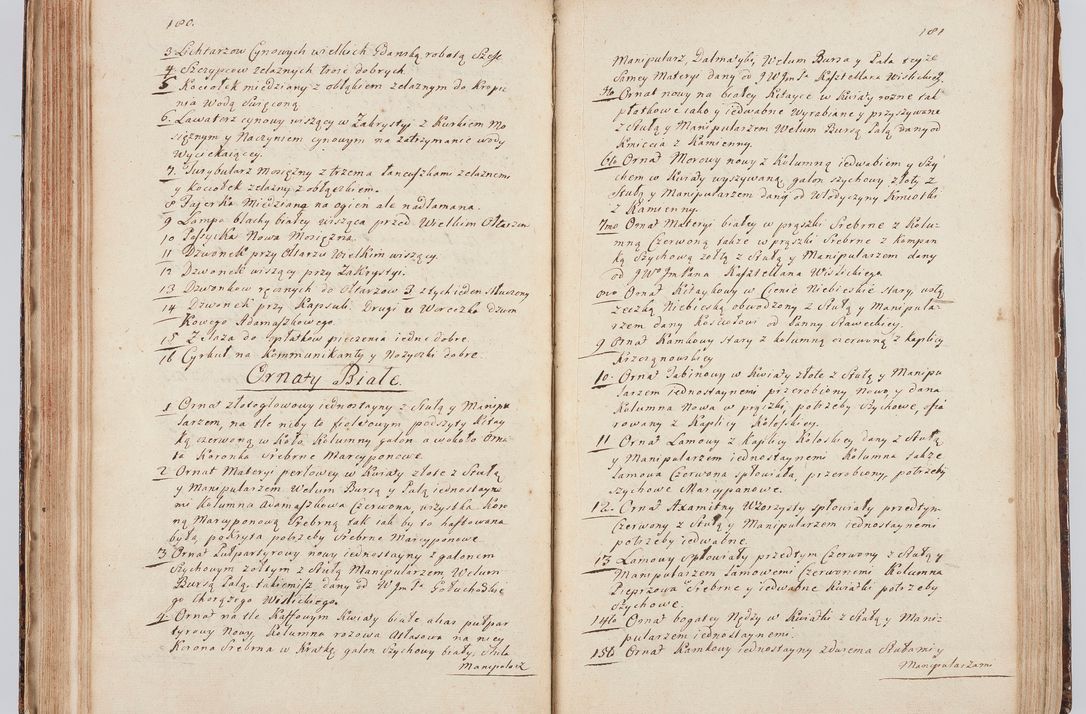 180.
3 Lichtarzow Cynowych wielkich Gdanską robotą Szesc
4. Szczypcow zelaznych troie dobrych.
5 Kociołek miedziany z obłąkiem zelaznym do kropie
nia Wodą Swięconą.
6. Lawatarz cynowy wiszący w Zakrystyi z Kurkiem Mo
sięznym y Naczyniem cynowym na zatrzymanie wody
Wyciekaiącey.
7. Turybularz Mosięzny z trzema łancuszkami zelaznemi
y kociołek zelazny z obłączkiem.
8 Fajerka Miedziana na ogień ale nadłamana.
9 Lampa blachy białey wisząca przed Wielkim Ołtarzem
10 Nowa Mosięzna.
11 Dzwonek przy Ołtarzu Wielkim wiszący.
12 Dzwonek wiszący przy Zakrystyi.
13 Dzwonkow ręcznych do Ołtarzow 3 z tych ieden stłuczony
14 Dzwonek przy Kapsuli. Drugi u Woreczka dzwon
kowego Adamaszkowego.
15 Zelaza do opłatkow pieczenia iedne dobre.
16 Cyrkuł na Kommunikanty y Nozyczki dobre.
Ornaty Białe.
1 Ornat złotogłowowy iednostayny z Stułą y Manipu
larzem, na tle niby to fioletowym podszyty Kitay
ką czerwoną w Koło Kolumny galon a wokoło Orna
ta Koronka Srebrne Marcyponowe.
2 Ornat Materyi perłowey w Kwiaty złote z Stułą
y Manipularzem Welum Bursą y Pallą iednostayne
mi Kolumna Adamaszkowa Czerwona, wszystka Koro
ną Marcyponową Srebrną tak iak by to haftowana
byłą pokryta potrzeby Srebrne Marcyponowe.
3 Ornat Pulpartyrowy nowy iednostayny z galonem
Szychowym zołtym z Stułą Manipularzem Welum
Bursą Palą takiemisz dany od W Jm Pa Gołuchowskie
go Chorązego Wislickiego.
4. Ornat na tle Kaffowym Kwiaty białe alias pulpar
tyrowy Nowy, Kolumna rozowa Atłasowa na niey
Korona Srebrna w Kratkę galon Szychowy biały, Stuła
Manipularz
181
Manipularz, Dalmatyki, Welum Bursa y Pala teyze
Samey Materyi dany od J W Jm Pa Kasztellana Wislickiego.
5to Ornat nowy na białey Kitayce w Kwiaty rozne tak
płotkowe iako y iedwabne Wyrabiane y przyszywane
z Stułą y Manipularzem Welum Bursą Palą dany od
Kmiecia z Kamienny.
6to Ornat Morowy nowy z Kolumną iedwabiem y Szy
chem w Kwiaty wyszywaną galon szychowy złoty z
Stułą y Manipularzem dany od Włodyczyny Kmiotki
z Kamienny.
7mo Ornat Materyi białey w prązki Srebrne z Kolu
mną Czerwoną takze w prązki Srebrne z Kompan
ką Szychową zołtą z Stułą y Manipularzem dany
od J Wo Jm Pana Kasztellana Wislickiego
Ornat Kitaykowy w Cienie Niebieskie stary, wstą
zeczką Niebieską obwodzony z Stułą y Manipula-
rzem dany Kosciołowi od Panny Sławeckiey.
9 Ornat Kamkowy stary z kolumną czerwoną z kaplicy
Krzczonowskiey
10. Ornat Tabinowy w Kwiaty złote z Stułą y Manipu
larzem iednostaynemi przerobiony Nowo y dana
Kolumna Nowa w prązki, potrzeby Szychowe, ofia
rowany z Kaplicy Koloskiey.
11 Ornat Lamowy z Kaplicy Koloskiey dany z Stułą
y Manipularzem iednostaynemi Kolumna takze
Lamowa Czerwona spłowiała, przerobiony, potrzeby
Szychowe Marcypanowe.
12. Ornat Axamitny Wzorzysty spłowiały przedtym
Czerwony z Stułą y Manipularzem iednostaynemi
potrzeby iedwabne.
13 Lamowy spłowiały przedtym Czerwony z Stułą y
Manipularzem Lamowemi Czerwonemi Kolumna
Pieprzowa Srebrne y iedwabne Kwiatki potrzeby
Szychowe.
14to Ornat bogatey Nędzy w Kwiatki z Stułą y Mani-
pularzem iednostaynemi.
15to Ornat Kamkowy iednostayny z dwiema Stułami y
Manipularzami